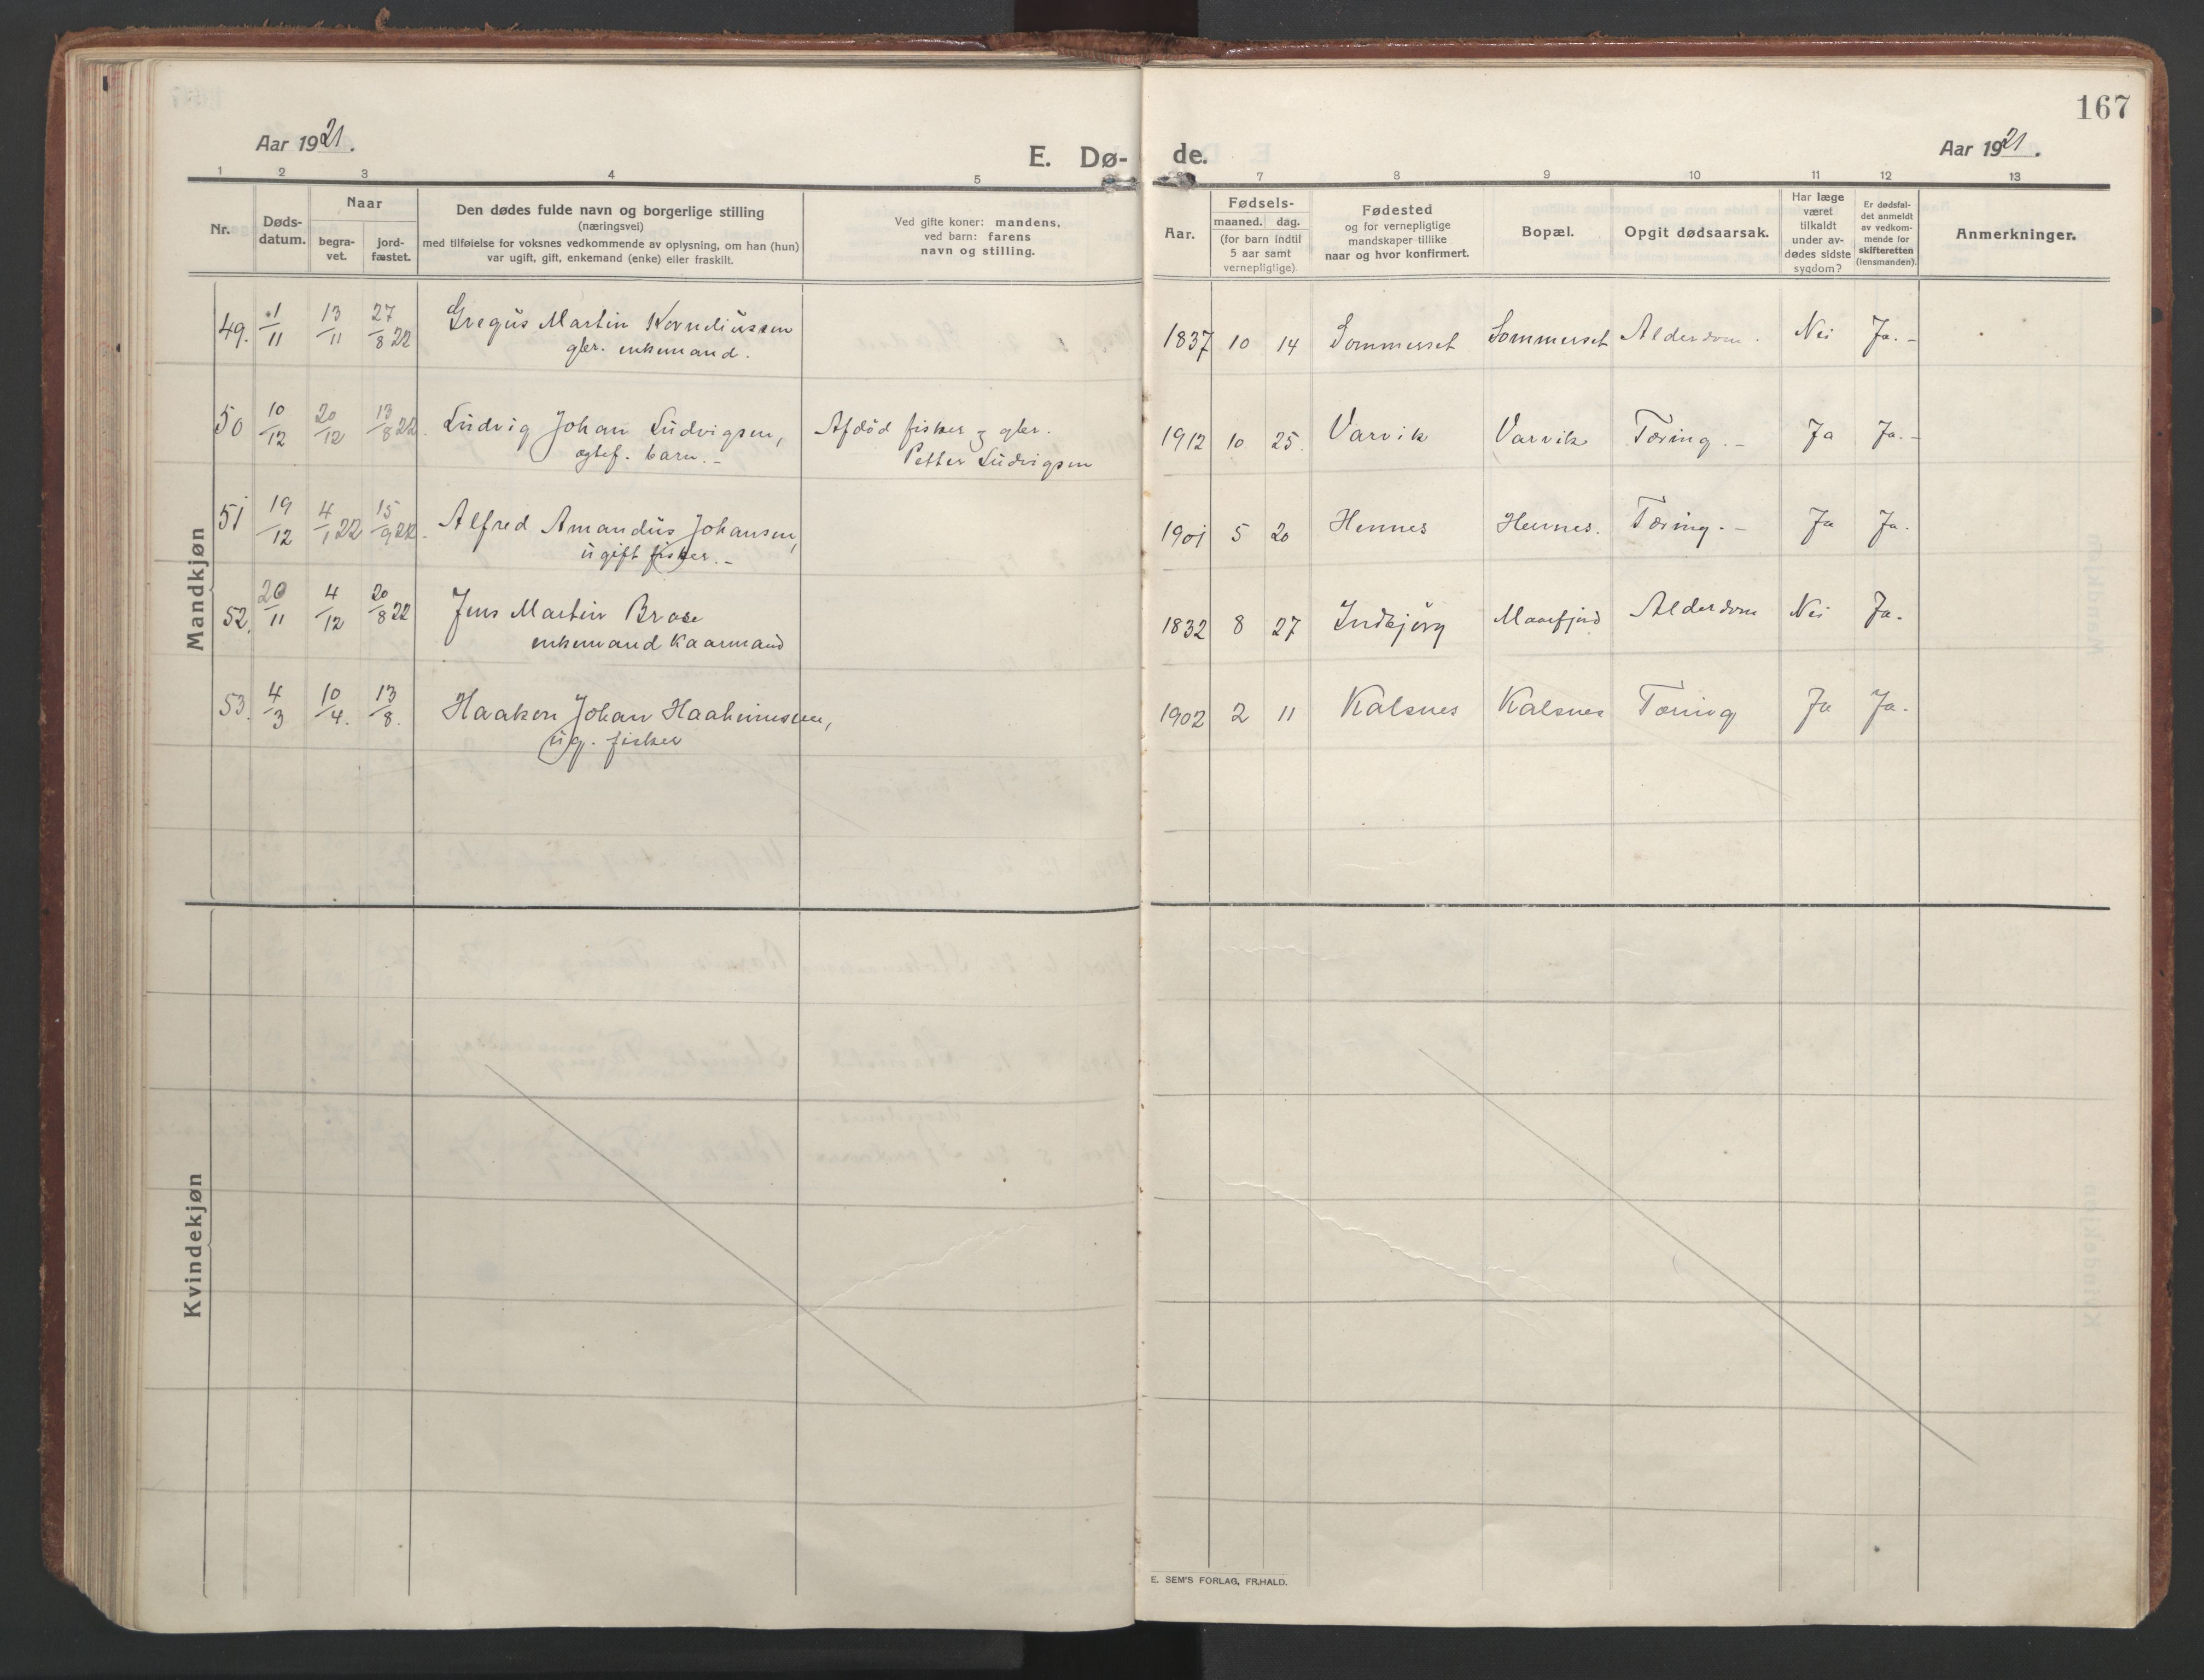 167
Aar 1921.
E. Dø-
de.
Aar 1921.
1 2 3 4 5 7 8 9 10 11 12 13
Nr.
Døds-
datum.
Naar
begra-
vet.
jord-
fæstet.
Den dødes fulde navn og borgerlige stilling
(næringsvei)
med tilføielse for voksnes vedkommende av oplysning, om han (hun)
var ugift, gift, enkemand (enke) eller fraskilt.
Ved gifte koner: mandens,
ved barn: farens
navn og stilling.
Aar.
Fødsels-
maaned. dag.
(for barn indtil
5 aar samt
vernepligtige).
Fødested
og for vernepligtige
mandskaper tillike
naar og hvor konfirmert.
Bopæl.
Opgit dødsaarsak.
Har læge
været
tilkaldt
under av-
dødes sidste
sygdom?
Er dødsfal-
det anmeldt
av vedkom-
mende for
skifteretten
(lensmanden).
Anmerkninger.
Mandkjøn
49. 1/11 13/11 27/8 22 Gregus Martin Korneliussen 1837 10 14 Sommerset Sommerset Alderdom. Nei Ja. -
gbr. enkemand.
50 10/12 20/12 13/8 22. Ludvig Johan Ludvigsen, Afdöd fisker og gbr. 1912 10 25. Varvik Varvik Tæring. - Ja Ja. -
ægtef. barn. - Petter Ludvigsen
51 19/12 4/1 22 15/9 22. Alfred Amandus Johansen, 1901 5 20 Hennes Hennes. Tæring. - Ja Ja.
ugift fisker. -
52. 26/11 4/12 20/8 22 Jens Martin Brose 1832 8 27 Indbjörg Maarfjord Alderdom Nei Ja.
enkemand kaarmand
53. 4/3 10/4. 13/8. Haakon Johan 1902 2 11 Kalsnes Kalsnes Tæring Ja Ja.
ug. fisker
Kvindekjøn
E. SEM'S FORLAG, FR.HALD.